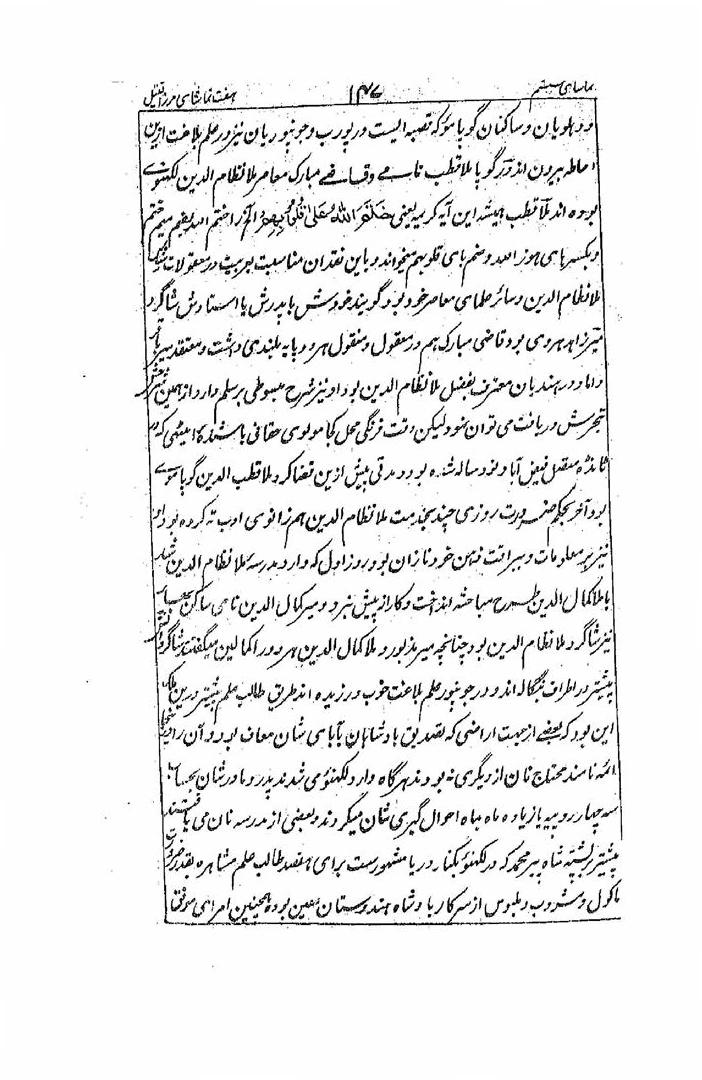 تماشای هفتم ۱۴۷ هفت تماشای مرزا قتیل
و دهلویان و ساکنان گوپامؤ که قصبه ایست در پورب و جونپوریان نیز در علم بلاغت ازین
احاطه بیرون اند آرے گویا ملا قطب نامے و قاضے مبارک معاصر ملا نظام الدین لکهنوے
بوده اند ملا قطب همیشه این آیه کریمه یعنی خَتَمَ اللهُ عَلیٰ قُلُوبِهِم الخ را ختم الله بضم میم ختم
و بکسر های هوز الله و ضم بای قلوبهم میخواند و باین فقدان مناسبت بعربیت در معقولات
ملا نظام الدین و سائر علمای معاصر خود بود گویند خودش یا پدرش یا استادش شاگرد
میرزاهد هروی بود قاضی مبارک هم در معقول و منقول هر دو پایه بلندی داشت و معتقد میر باقر
داماد در هندیان معترف بفضل ملا نظام الدین بود او نیز شرح مبسوطی بر سلم دارد از همین
تبحرش دریافت می توان نمود لیکن دقت فرنگی محل کجا مولوی حقانی باشنده امیٹهی که در
ٹانڈه متصل فیض آباد نود ساله شده بود و مدتی پیش ازین قضا کرد ملا قطب الدین گوپاموے
بود آخر بحکم ضرورت روزی چند بخدمت ملا نظام الدین هم زانوی ادب ته کرده بود او
نیز بر معلومات و سرافت ذهن خود نازان بود روز اول که وارد مدرسه ملا نظام الدین شد
با ملا کمال الدین طرح مباحثه انداخت و کار از پیش نبرد و میر کمال الدین نامی ساکن
نیز شاگرد ملا نظام الدین بود چنانچه میر مذبور و ملا کمال الدین هر دو را کمالین میگفتند شاگردان
پیشتر در اطراف بنگاله اند و در جونپور علم بلاغت خوب ورزیده اند طریق طالب علم پیشتر درین ملک
این بود که بعضے از جهت اراضی که بتصدیق بادشاهان بآبای شان معاف بود و آن را در
ائمه نامند محتاج نان از دیگری نه بودند هر گاه وارد لکهنؤ می شدند پدر و مادر شان
سه چهار روپیه یا زیاده ماه بماه احوال گیری شان میکردند و بعضی از مدرسه نان می یافتند
پیشتر بر پشته شاه پیر محمد که در لکهنؤ بکنار دریا مشهورست برای هفتصد طالب علم مشاهره بقدر
ماکول و مشروب و ملبوس از سرکار بادشاه هندوستان معین بوده همچنین امرای